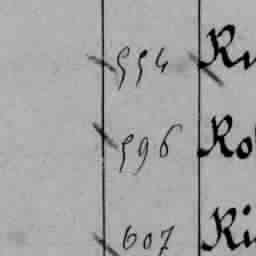 554 Ru
596 Ro
607 Ri